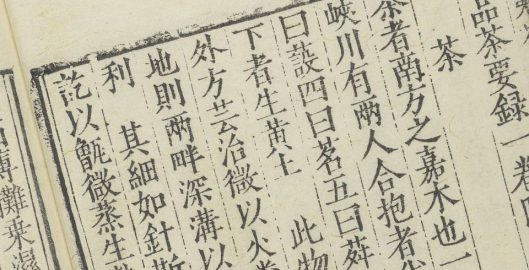 品茶要録一巻
茶
茶者南方之嘉木也一
峽川有兩人合抱者
曰蔎四曰茗五曰荈
下者生黄土　此物
外方芸治微以火
地則兩畔深溝以
利　其細如針斯
訖以甑微蒸生
傳難来濕